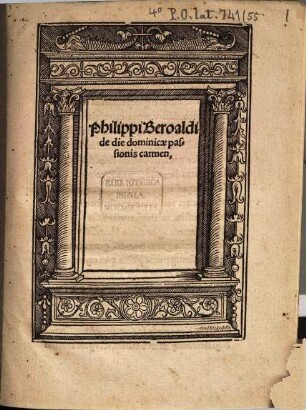 4° P.O. lat. 741/55
Philippi Beroaldi
de die dominicæ pas-
sionis carmen.
BIBLIOTHECA
REGIA
MONACENSIS